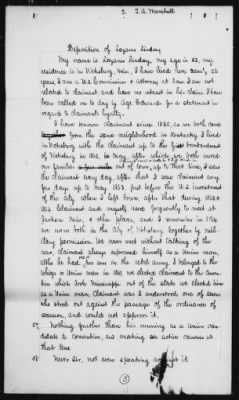 2. T. A. Marshall
Deposition of Logans Lindsey
My name is Logans Lindsey, my age is 53, my
residence is in Vicksburg, Miss, I have lived here
years, I am a U.S. Commissioner & Attorney at law I am not
related to claimant, and have no interest in his claim I have
been called on to day by Agt. Edwards for a statement in
regard to claimants loyalty.
I have known claimant since 1835, as we both came
from the same neighborhood in Kentucky I lived
in Vicksburg with the Claimant up to the first bombardment
of Vicksburg in 1862, after which we both moved
our families out of town, up to that time I saw
the claimant every day, after that I saw claimant every
few days up to May 1863. Just before the U.S. investment
of the city when I left town after that during 1863 &
1864 Claimant and myself were frequently to meet at
Jackson Miss, & other places, and I remember in 1864
we were both in the City of Vicksburg together by mili-
tary permission. We never met without talking of the
war, claimant always expressed himself as a Union man,
altho he had his son in the rebel army I belonged to the
Whigs or Union men in 1860, we elected claimant to the Conven-
tion which took Mississippi out of the state we elected him
as a Union man, Claimant was I understood one of seven
who stood out against the passage of the ordinance of
secession, and would not approve it.
Nothing further than his running as a Union candi-
date to Convention, no making an active canvass at
that time
Never Sir, not even speaking against it.
3